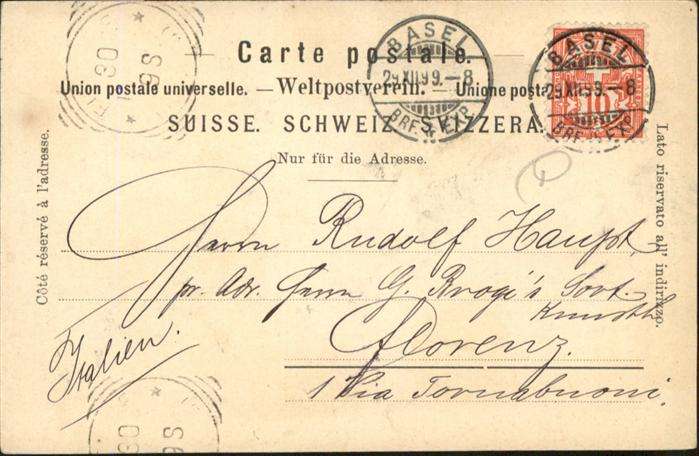 Carte postale.
Union postale universelle. — Weltpostverein. — Unione posta
SUISSE. SCHWEIZ. SVIZZERA.
Nur für die Adresse.
Côté réservé à l'adresse.
Lato riservato all' indirizzo.
BASEL
29.XII.99.–8
BRF. EXP.
BASEL
29.XII.99.–8
BRF. EXP.
10
Herrn Rudolf Haupt,
pr. Adr. Herrn G. Brogi's Sort.
Kunsth
Florenz.
1 Via Tornabuoni.
Italien.